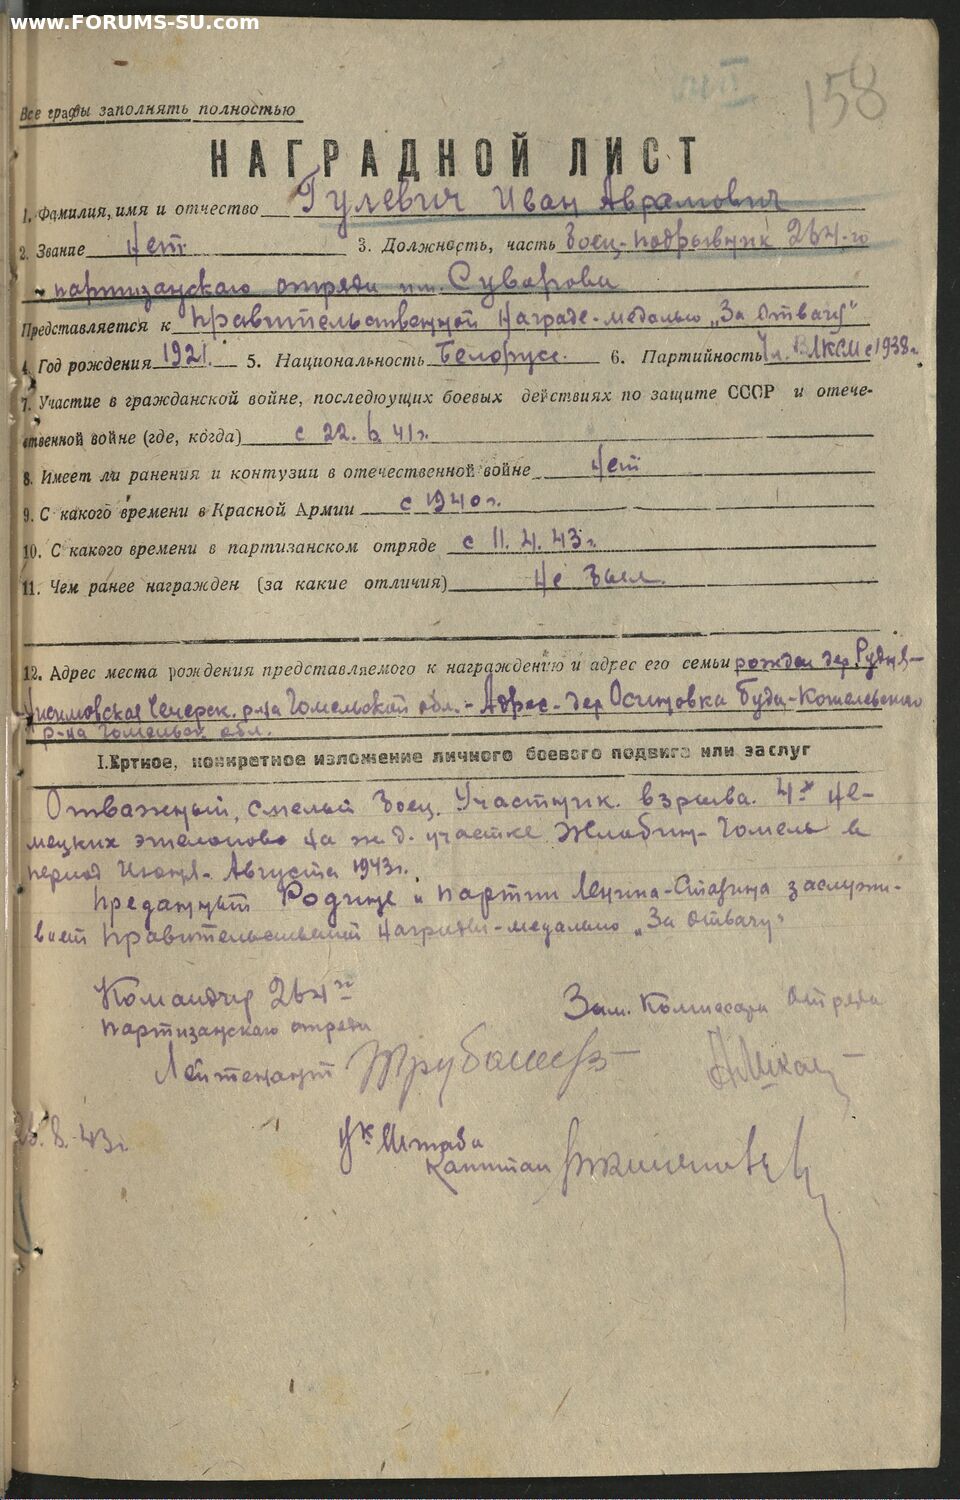 www.FORUMS-SU.com
158
Все графы заполнять полностью
НАГРАДНОЙ ЛИСТ
1. Фамилия, имя и отчество Гулевич Иван Аврамович
2. Звание нет 3. Должность, часть боец-подрывник 264-го
партизанского отряда им. Суворова
Представляется к правительственной награде-медалью „За Отвагу"
4. Год рождения 1921. 5. Национальность Белорусс. 6. Партийность Чл. ВЛКСМ с 1938г.
7. Участие в гражданской войне, последующих боевых действиях по защите СССР и отече-
ственной войне (где, когда) с 22. 6 41г.
8. Имеет ли ранения и контузии в отечественной войне нет
9. С какого времени в Красной Армии с 1940 г.
10. С какого времени в партизанском отряде с 11. 4. 43 г.
11. Чем ранее награжден (за какие отличия) не был.
12. Адрес места рождения представляемого к награждению и адрес его семьи рожден дер. Рудня-
Чечерск. р-на Гомельской обл. - Адрес - дер Осиновка Буда-Кошелевского
р-на Гомельск обл.
конкретное изложение личного боевого подвига или заслуг
Отважный, смелый боец. Участник. взрыва. 4х не-
мецких эшелонов на ж. д. участке Жлобин-Гомель в
период Июня-Августа 1943г.
Преданный Родине и партии Ленина-Сталина заслужи-
вает правительственной награды-медалью „За Отвагу"
Командир 264го
партизанского отряда
Лейтенант
Зам. Комиссара отряда
8. 43г
Штаба
Капитан